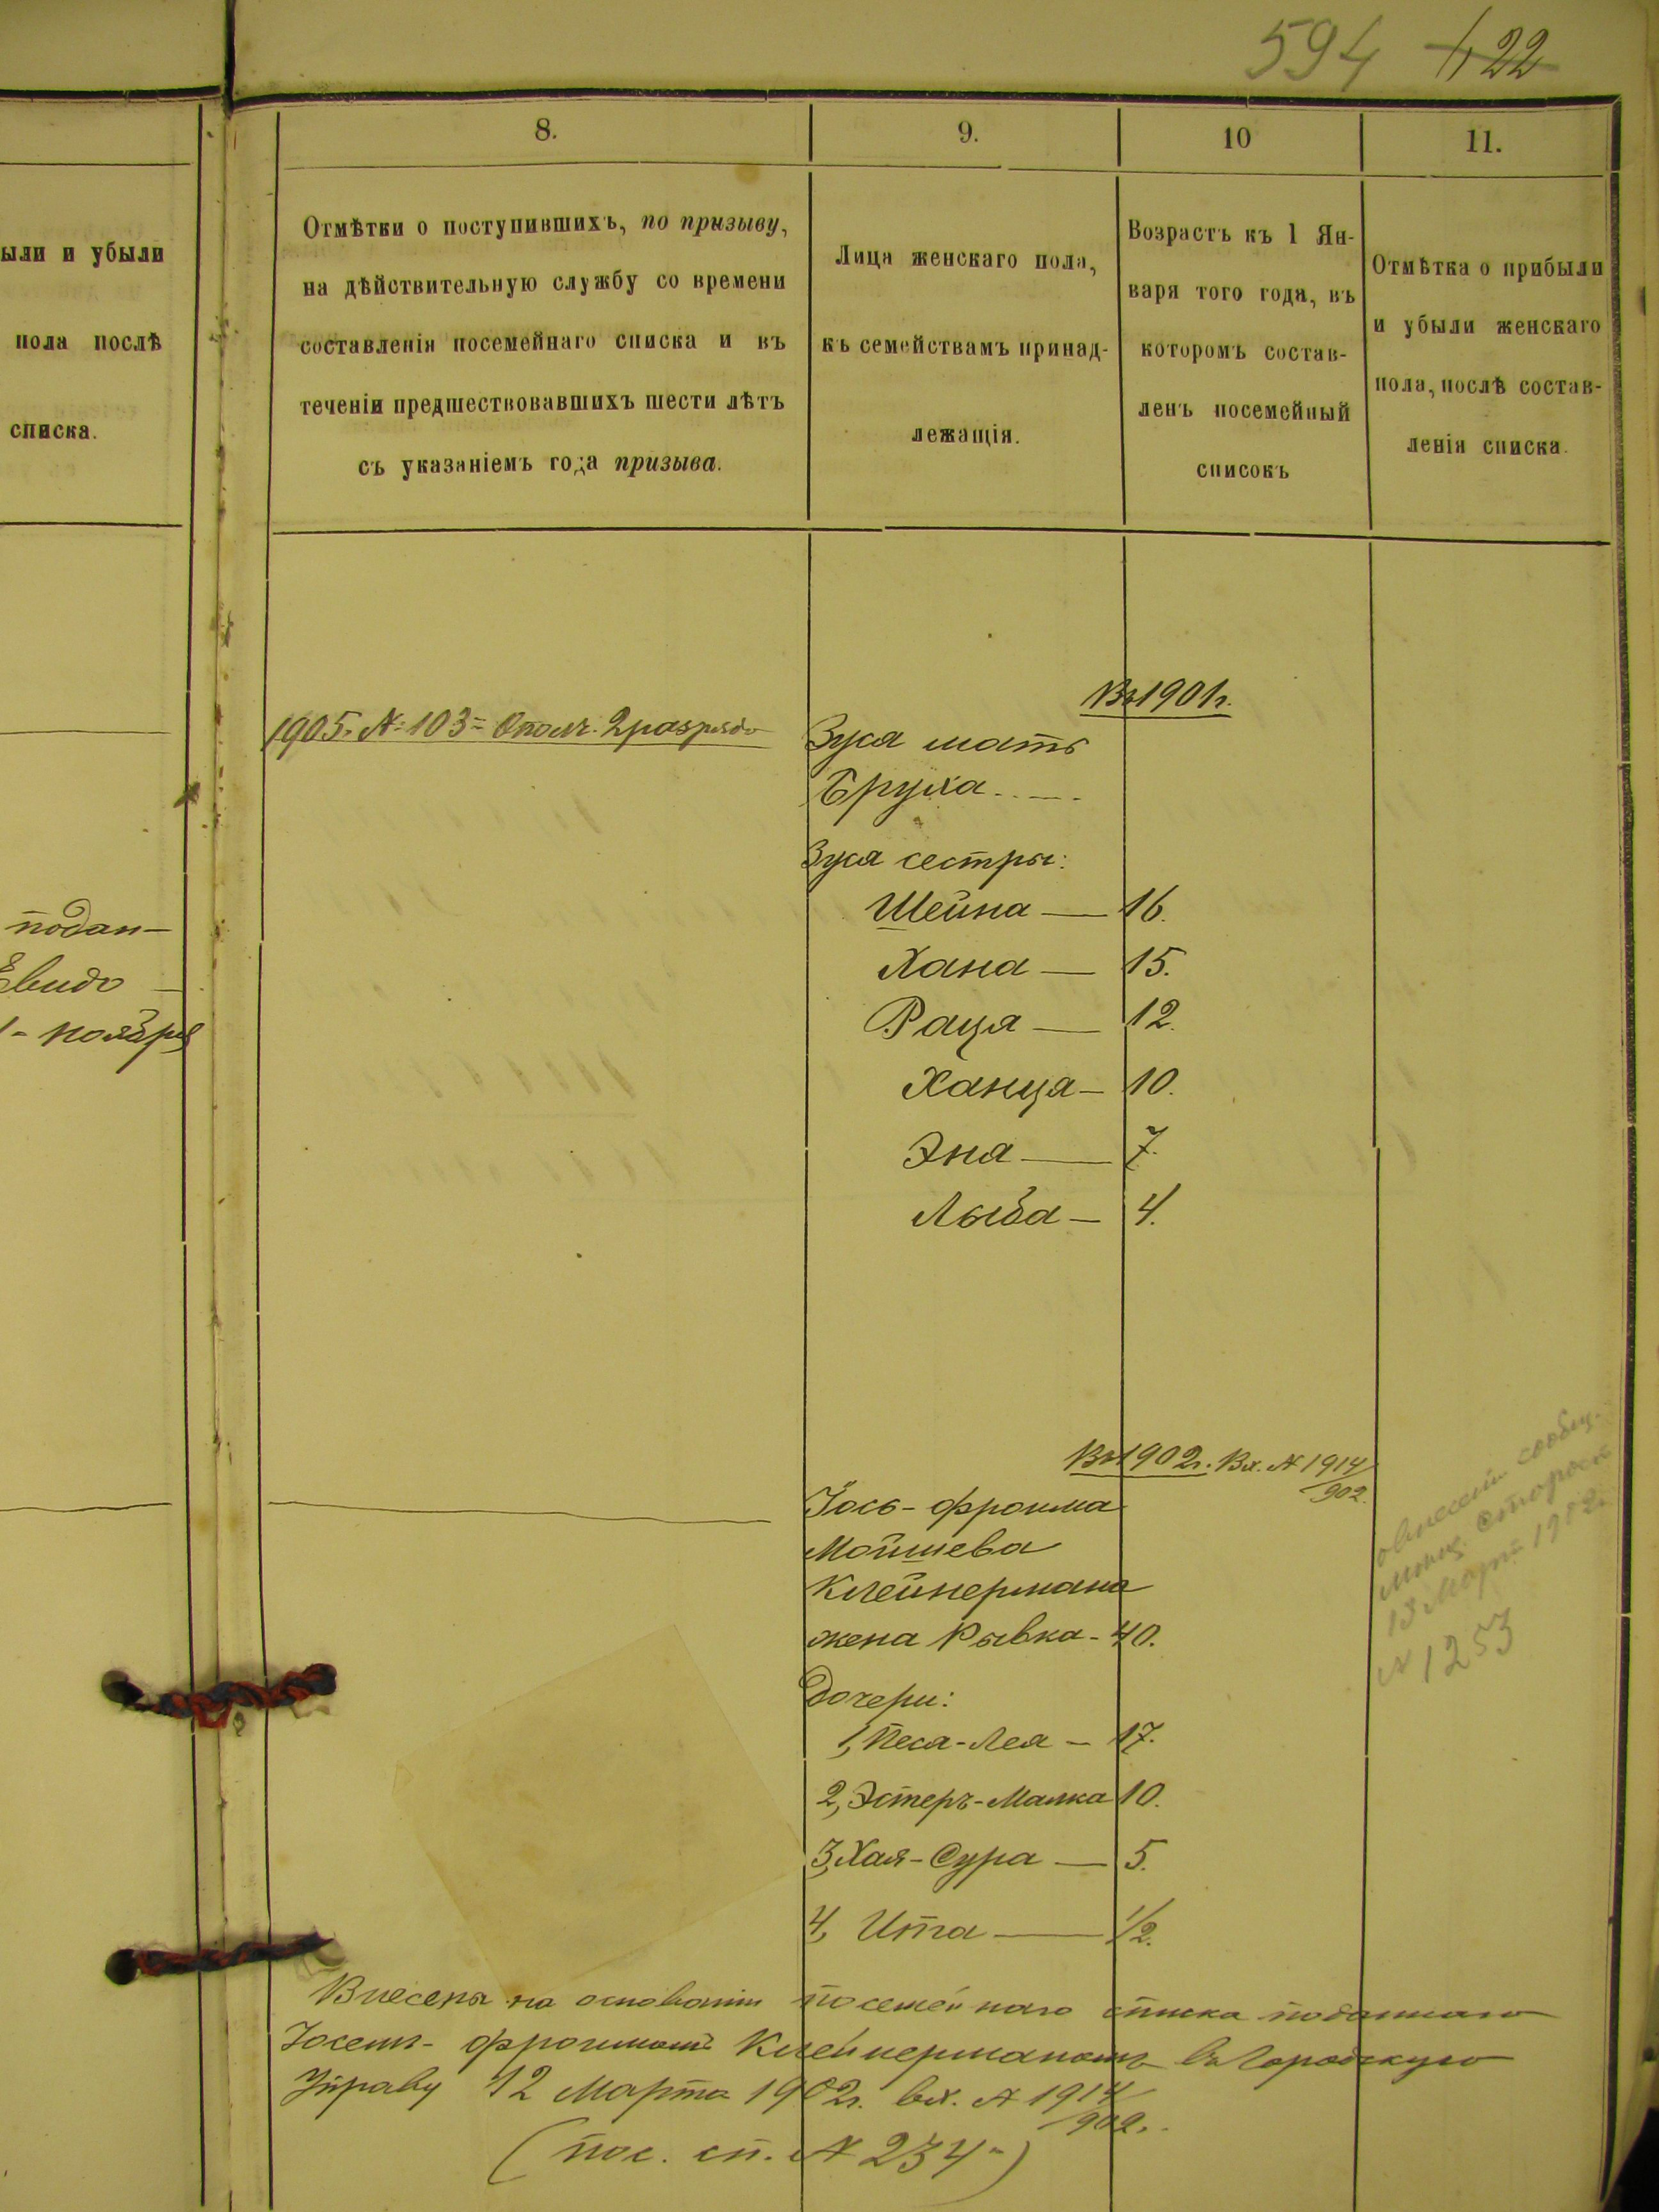 594 422
8.
9.
10
11.
ыли и убыли
пола послѣ
списка.
Отмѣтки о поступившихъ, по призыву,
на дѣйствительную службу со времени
составленія посемейнаго списка и въ
теченіи предшествовавшихъ шести лѣтъ
съ указаніемъ года призыва.
Лица женскаго пола,
къ семействамъ принад-
лежащія.
Возрастъ къ 1 Ян-
варя того года, въ
которомъ состав-
ленъ посемейный
списокъ
Отмѣтка о прибыли
и убыли женскаго
пола, послѣ состав-
ленія списка.
подан-
ноября
1905. № 103= Ополч. 2 разряда
Въ 1901 г.
Зуся мать
Бруха
Зуся сестры:
Шейна — 16.
Хана — 15.
Рация — 12.
Ханця — 10.
Эня — 7.
Лыба — 4.
Въ 1902 г. Вх. № 1914/902.
Іось-Фроима
Мойшева
Клейнермана
жена Рывка - 40.
Дочери:
1, Песя-Лея — 17.
2, Эстеръ-Малка 10.
3, Хая-Сура — 5.
4, Ита — 1/2.
сообщ.
мѣщ. старост
13 Март 1902
№ 1253
Внесены на основаніи посемейнаго списка поданнаго
Іосемъ-Фроимомъ Клейнерманомъ въ Городскую
Управу 12 Марта 1902 г. вх. № 1914/902.
(пос. сп. № 234")